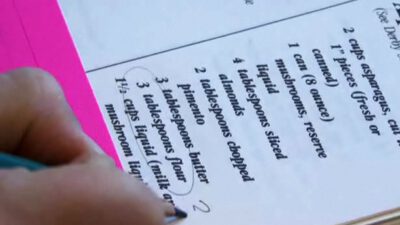 (See Derby
2 cups asparagus, cut
1" pieces (fresh or
canned)
1 can (8 ounce)
mushrooms, reserve
liquid
4 tablespoons sliced
almonds
2 tablespoons chopped
pimento
3 tablespoons butter
3 tablespoons flour
1½ cups liquid (milk
mushroom
2